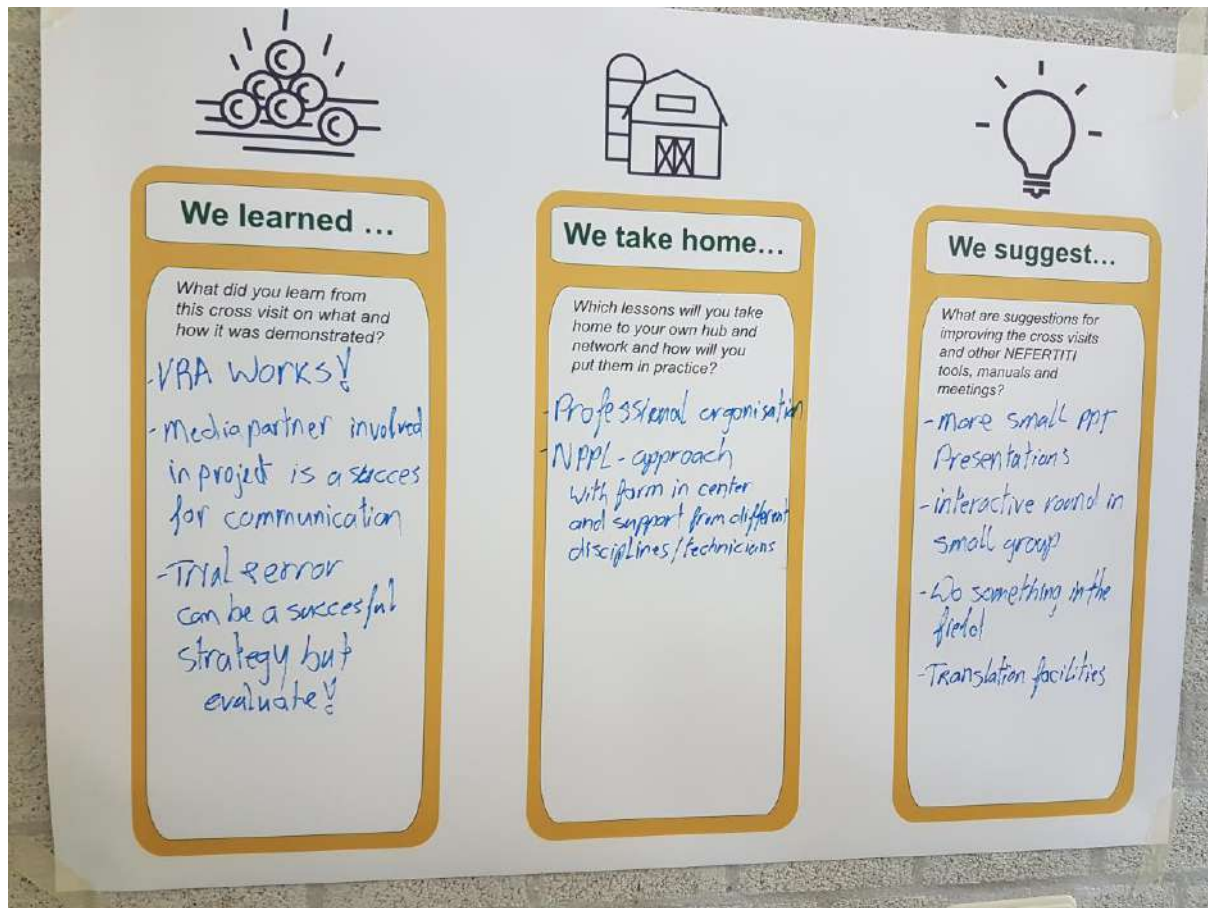 We learned ...
What did you learn from
this cross visit on what and
how it was demonstrated?
- VRA WORKS!
- Mediapartner involved
in project is a succes
for communication
- Trial & error
can be a succesful
strategy but
evaluate!
We take home...
Which lessons will you take
home to your own hub and
network and how will you
put them in practice?
- Professional organisation
- NPPL - approach
with farm in center
and support from different
disciplines/technicians
We suggest...
What are suggestions for
improving the cross visits
and other NEFERTITI
tools, manuals and
meetings?
- more small PPT
Presentations
- interactive round in
small group
- Do something in the
field
- Translation facilities